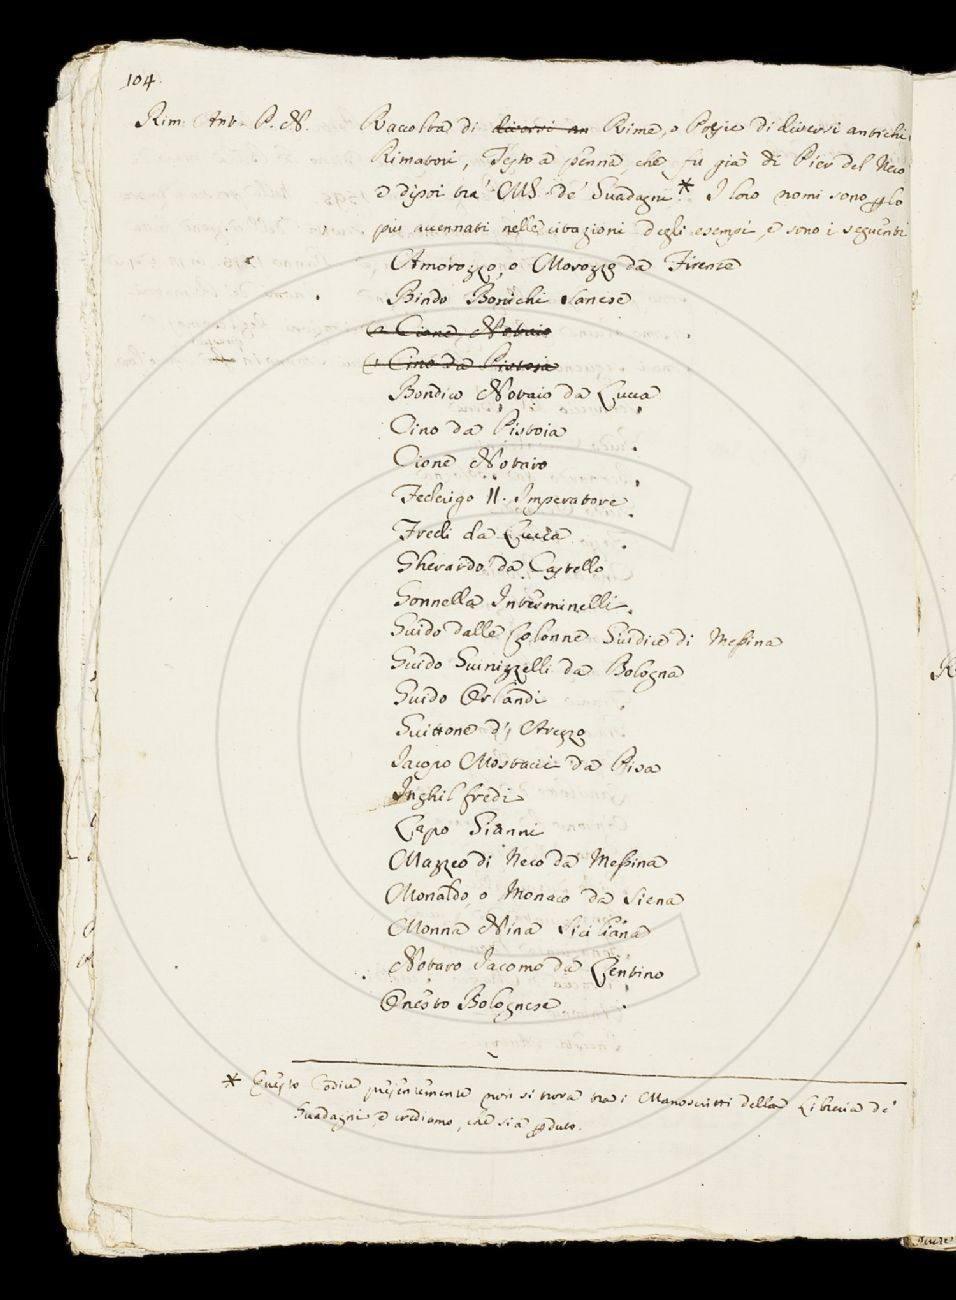 104.
Rim. Ant. P. N. Raccolta di diversi an Rime, o Poesie di diversi antichi
Rimatori, Testo a penna, che fu già di Pier del Nero
e dipoi tra' MS. de' Guadagni.* I loro nomi sono p lo
più accennati nelle citazioni degli esempi, e sono i seguenti
Amorozzo, o Morozzo da Firenze
Bindo Bonichi Sanese
(2 Cione Notaio
(1 Cino da Pistoia
Bondico Notaio da Lucca
Cino da Pistoia
Cione Notaio
Federigo II. Imperatore
Fredi da Lucca
Gherardo da Castello
Gonnella Interminelli
Guido dalle Colonne Giudice di Messina
Guido Guinizzelli da Bologna
Guido Orlandi
Guittone d' Arezzo
Jacopo Mostacci da Pisa
Inghilfredi
Lapo Gianni
Mazzeo di Rico da Messina
Monaldo, o Monaco da Siena
Monna Nina Siciliana
Notaro Jacomo da Lentino
Onesto Bolognese
* Questo Codice presentemente non si trova tra i Manoscritti della Libreria de'
Guadagni, e crediamo, che sia pduto.